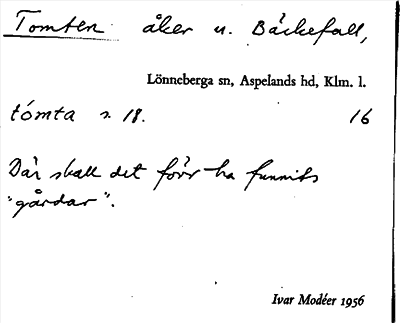 Tomten åker u. Bäckefall,
Lönneberga sn, Aspelands hd, Klm. l.
tómta s. 18. 16
Där skall det förr ha funnits
"gårdar".
Ivar Modéer 1956